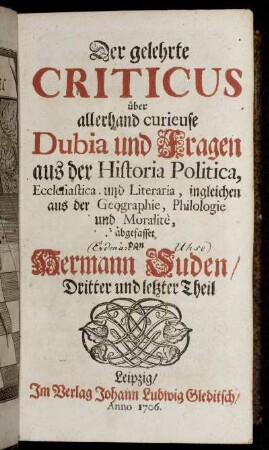 Der gelehrte
CRITICUS
über
allerhand curieuse
Dubia und Fragen
aus der Historia Politica,
Ecclesiastica und Literaria, ingleichen
aus der Geographie, Philologie
und Moralitè,
abgefasset
von
(Erdman Uhse)
Hermann Suden/
Dritter und letzter Theil
Leipzig/
Im Verlag Johann Ludwig Gleditsch/
Anno 1706.